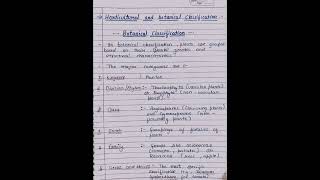 Horticultural and botanical Classification -
Botanical Classification
In botanical classification, plants are grouped
based on their genetic and
structural characteristics.
The major categories are :-
Kingdom :- Plantae
Division/Phylum :- Tracheophyta (vascular plants)
or Bryophyta (non-vascular
plants)
Class :- Angiosperms (flowering plants)
and Gymnosperms (non-
flowering plants)
Order :- Groupings of families of
plants
Family :- Groups like Solanaceae
(tomato, potato) or
Rosaceae (rose, apple)
Genus and species :- The most specific